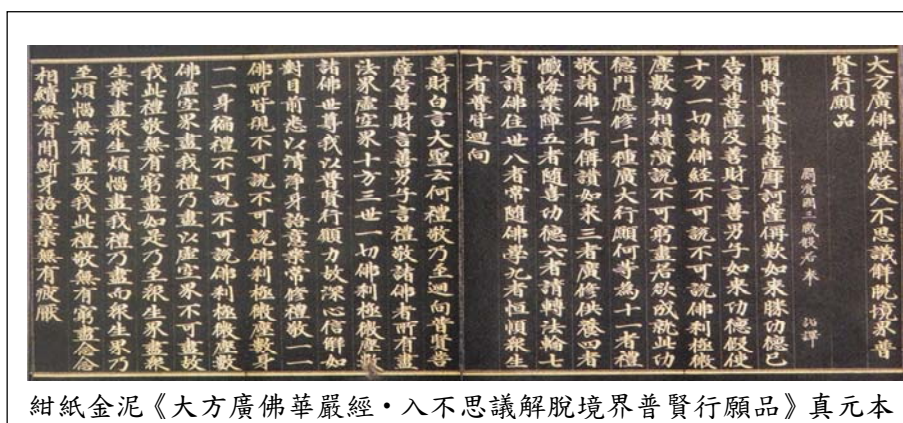 大方廣佛華嚴經入不思議解脫境界普
賢行願品
罽賓國三藏般若奉 詔譯
爾時普賢菩薩摩訶薩稱歎如來勝功德已
告諸菩薩及善財言善男子如來功德假使
十方一切諸佛經不可說不可說佛剎極微
塵數劫相續演說不可窮盡若欲成就此功
德門應修十種廣大行願何等為十一者禮
敬諸佛二者稱讚如來三者廣修供養四者
懺悔業障五者隨喜功德六者請轉法輪七
者請佛住世八者常隨佛學九者恒順衆生
十者普皆迴向
善財白言大聖云何禮敬乃至迴向普賢菩
薩告善財言善男子言禮敬諸佛者所有盡
法界虛空界十方三世一切佛剎極微塵數
諸佛世尊我以普賢行願力故深心信解如
對目前悉以清淨身語意業常修禮敬一一
佛所皆現不可說不可說佛剎極微塵數身
一一身徧禮不可說不可說佛剎極微塵數
佛虛空界盡我禮乃盡以虛空界不可盡故
我此禮敬無有窮盡如是乃至衆生界盡衆
生業盡衆生煩惱盡我禮乃盡而衆生界乃
至煩惱無有盡故我此禮敬無有窮盡念念
相續無有間斷身語意業無有疲厭
紺紙金泥《大方廣佛華嚴經•入不思議解脫境界普賢行願品》真元本